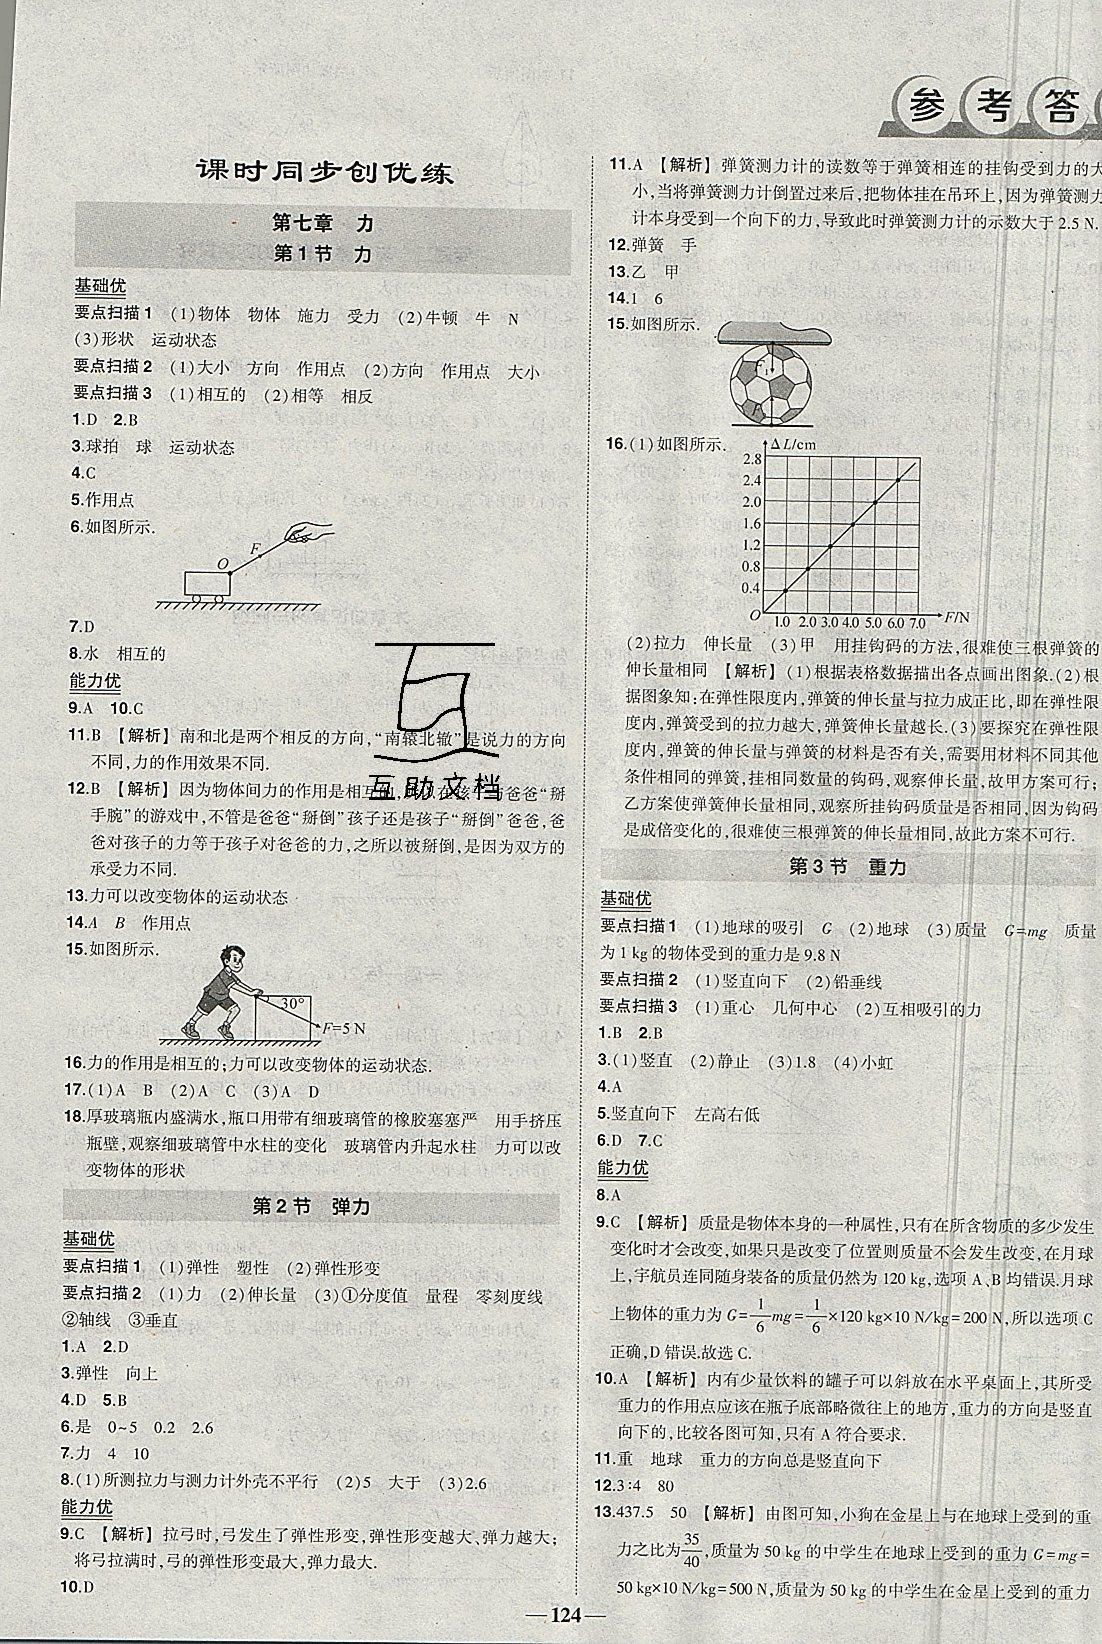 参考答
课时同步创优练
第七章 力
第1节 力
基础优
要点扫描1 (1)物体 物体 施力 受力 (2)牛顿 牛 N
(3)形状 运动状态
要点扫描2 (1)大小 方向 作用点 (2)方向 作用点 大小
要点扫描3 (1)相互的 (2)相等 相反
1.D 2.B
3.球拍 球 运动状态
4.C
5.作用点
6.如图所示.
O F
7.D
8.水 相互的
能力优
9.A 10.C
11.B 【解析】南和北是两个相反的方向,“南辕北辙”是说力的方向
不同,力的作用效果不同.
12.B 【解析】因为物体间力的作用是相互的,所以在孩子与爸爸“掰
手腕”的游戏中,不管是爸爸“掰倒”孩子还是孩子“掰倒”爸爸,爸
爸对孩子的力等于孩子对爸爸的力,之所以被掰倒,是因为双方的
承受力不同.
13.力可以改变物体的运动状态
14.A B 作用点
15.如图所示.
30°
F=5 N
16.力的作用是相互的;力可以改变物体的运动状态.
17.(1)A B (2)A C (3)A D
18.厚玻璃瓶内盛满水,瓶口用带有细玻璃管的橡胶塞塞严 用手挤压
瓶壁,观察细玻璃管中水柱的变化 玻璃管内升起水柱 力可以改
变物体的形状
第2节 弹力
基础优
要点扫描1 (1)弹性 塑性 (2)弹性形变
要点扫描2 (1)力 (2)伸长量 (3)①分度值 量程 零刻度线
②轴线 ③垂直
1.A 2.D
3.弹性 向上
4.D 5.B
6.是 0~5 0.2 2.6
7.力 4 10
8.(1)所测拉力与测力计外壳不平行 (2)5 大于 (3)2.6
能力优
9.C 【解析】拉弓时,弓发生了弹性形变,弹性形变越大,弹力越大;
将弓拉满时,弓的弹性形变最大,弹力最大.
10.D
互助文档
11.A 【解析】弹簧测力计的读数等于弹簧相连的挂钩受到力的大
小,当将弹簧测力计倒置过来后,把物体挂在吊环上,因为弹簧测力
计本身受到一个向下的力,导致此时弹簧测力计的示数大于2.5 N.
12.弹簧 手
13.乙 甲
14.1 6
15.如图所示.
16.(1)如图所示.
ΔL/cm
2.8
2.4
2.0
1.6
1.2
0.8
0.4
O 1.0 2.0 3.0 4.0 5.0 6.0 7.0 F/N
(2)拉力 伸长量 (3)甲 用挂钩码的方法,很难使三根弹簧的
伸长量相同 【解析】(1)根据表格数据描出各点画出图象.(2)根
据图象知:在弹性限度内,弹簧的伸长量与拉力成正比,即在弹性限
度内,弹簧受到的拉力越大,弹簧伸长量越长.(3)要探究在弹性限
度内,弹簧的伸长量与弹簧的材料是否有关,需要用材料不同其他
条件相同的弹簧,挂相同数量的钩码,观察伸长量,故甲方案可行;
乙方案使弹簧伸长量相同,观察所挂钩码质量是否相同,因为钩码
是成倍变化的,很难使三根弹簧的伸长量相同,故此方案不可行.
第3节 重力
基础优
要点扫描1 (1)地球的吸引 G (2)地球 (3)质量 G=mg 质量
为1 kg的物体受到的重力是9.8 N
要点扫描2 (1)竖直向下 (2)铅垂线
要点扫描3 (1)重心 几何中心 (2)互相吸引的力
1.B 2.B
3.(1)竖直 (2)静止 (3)1.8 (4)小虹
4.A
5.竖直向下 左高右低
6.D 7.C
能力优
8.A
9.C 【解析】质量是物体本身的一种属性,只有在所含物质的多少发生
变化时才会改变,如果只是改变了位置则质量不会发生改变,在月球
上,宇航员连同随身装备的质量仍然为120 kg,选项A、B均错误.月球
上物体的重力为G=1/6mg=1/6×120 kg×10 N/kg=200 N,所以选项C
正确,D错误.故选C.
10.A 【解析】内有少量饮料的罐子可以斜放在水平桌面上,其所受
重力的作用点应该在瓶子底部略微往上的地方,重力的方向是竖直
向下的,比较各图可知,只有A符合要求.
11.重 地球 重力的方向总是竖直向下
12.3∶4 80
13.437.5 50 【解析】由图可知,小狗在金星上与在地球上受到的重
力之比为35/40,质量为50 kg的中学生在地球上受到的重力G=mg=
50 kg×10 N/kg=500 N,质量为50 kg的中学生在金星上受到的重力
124